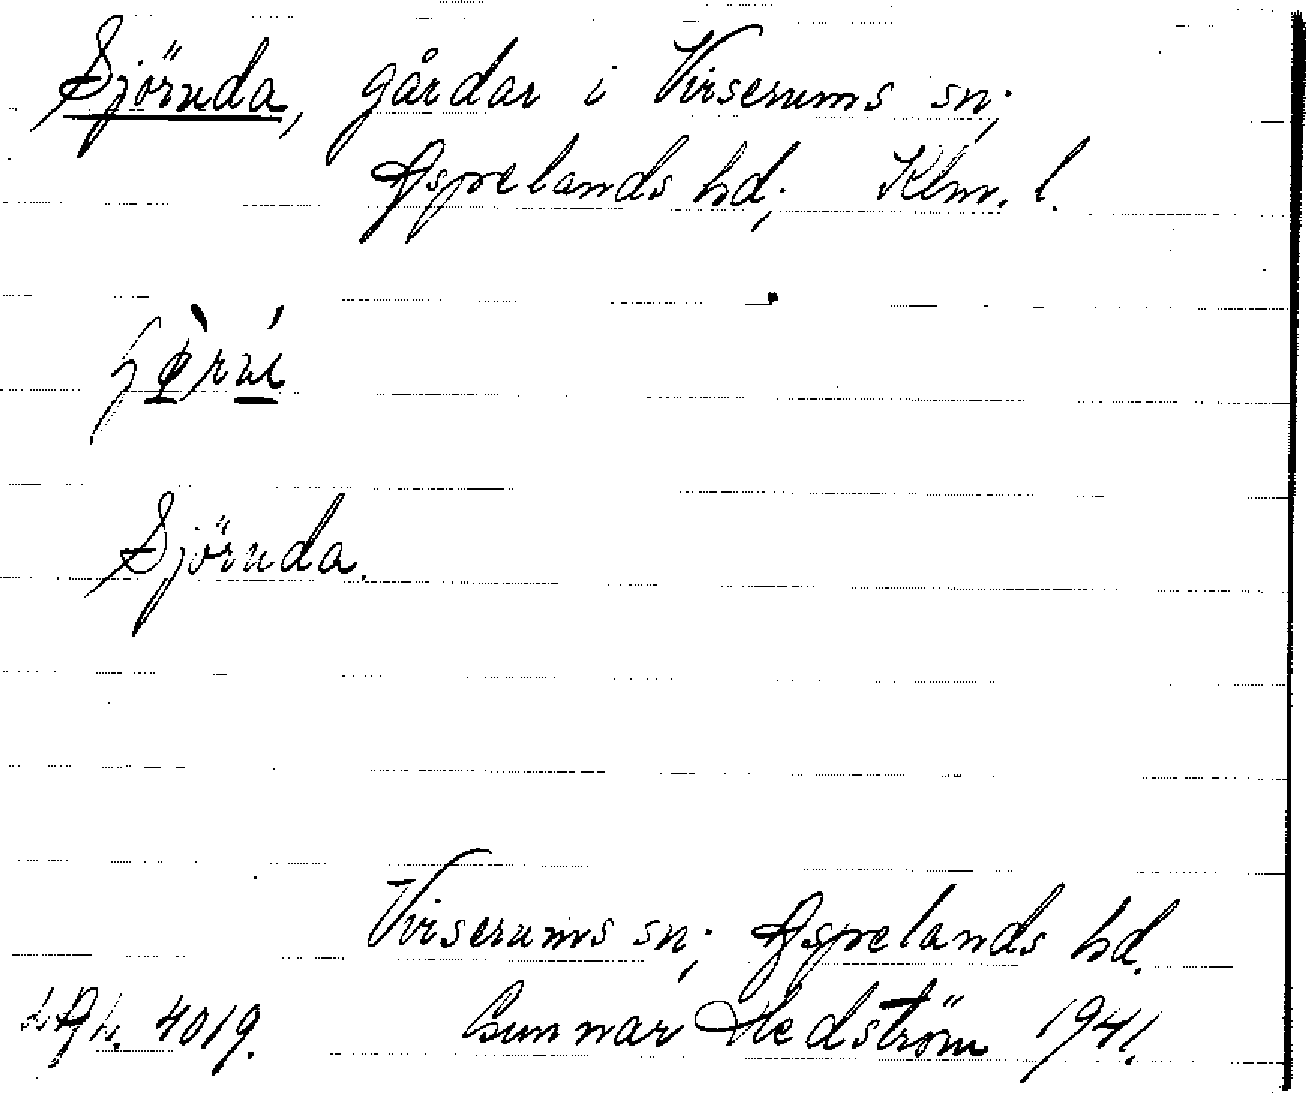 Sjörnda, gårdar i Virserums sn;
Aspelands hd; Klm. l.
Sjörnda.
Virserums sn; Aspelands hd.
4019. Gunnar Hedström 1941.